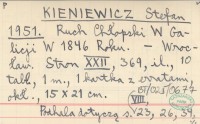 KIENIEWICZ Stefan
1951. Ruch Chłopski W Ga-
licji W 1846 Roku. — Wroc-
ław. Stron XXII, 369, il., 10
tabl., 1 m., 1 kartka z erratami,
okł., 15 x 21 cm.
VIII
s. 23, 26, 34,